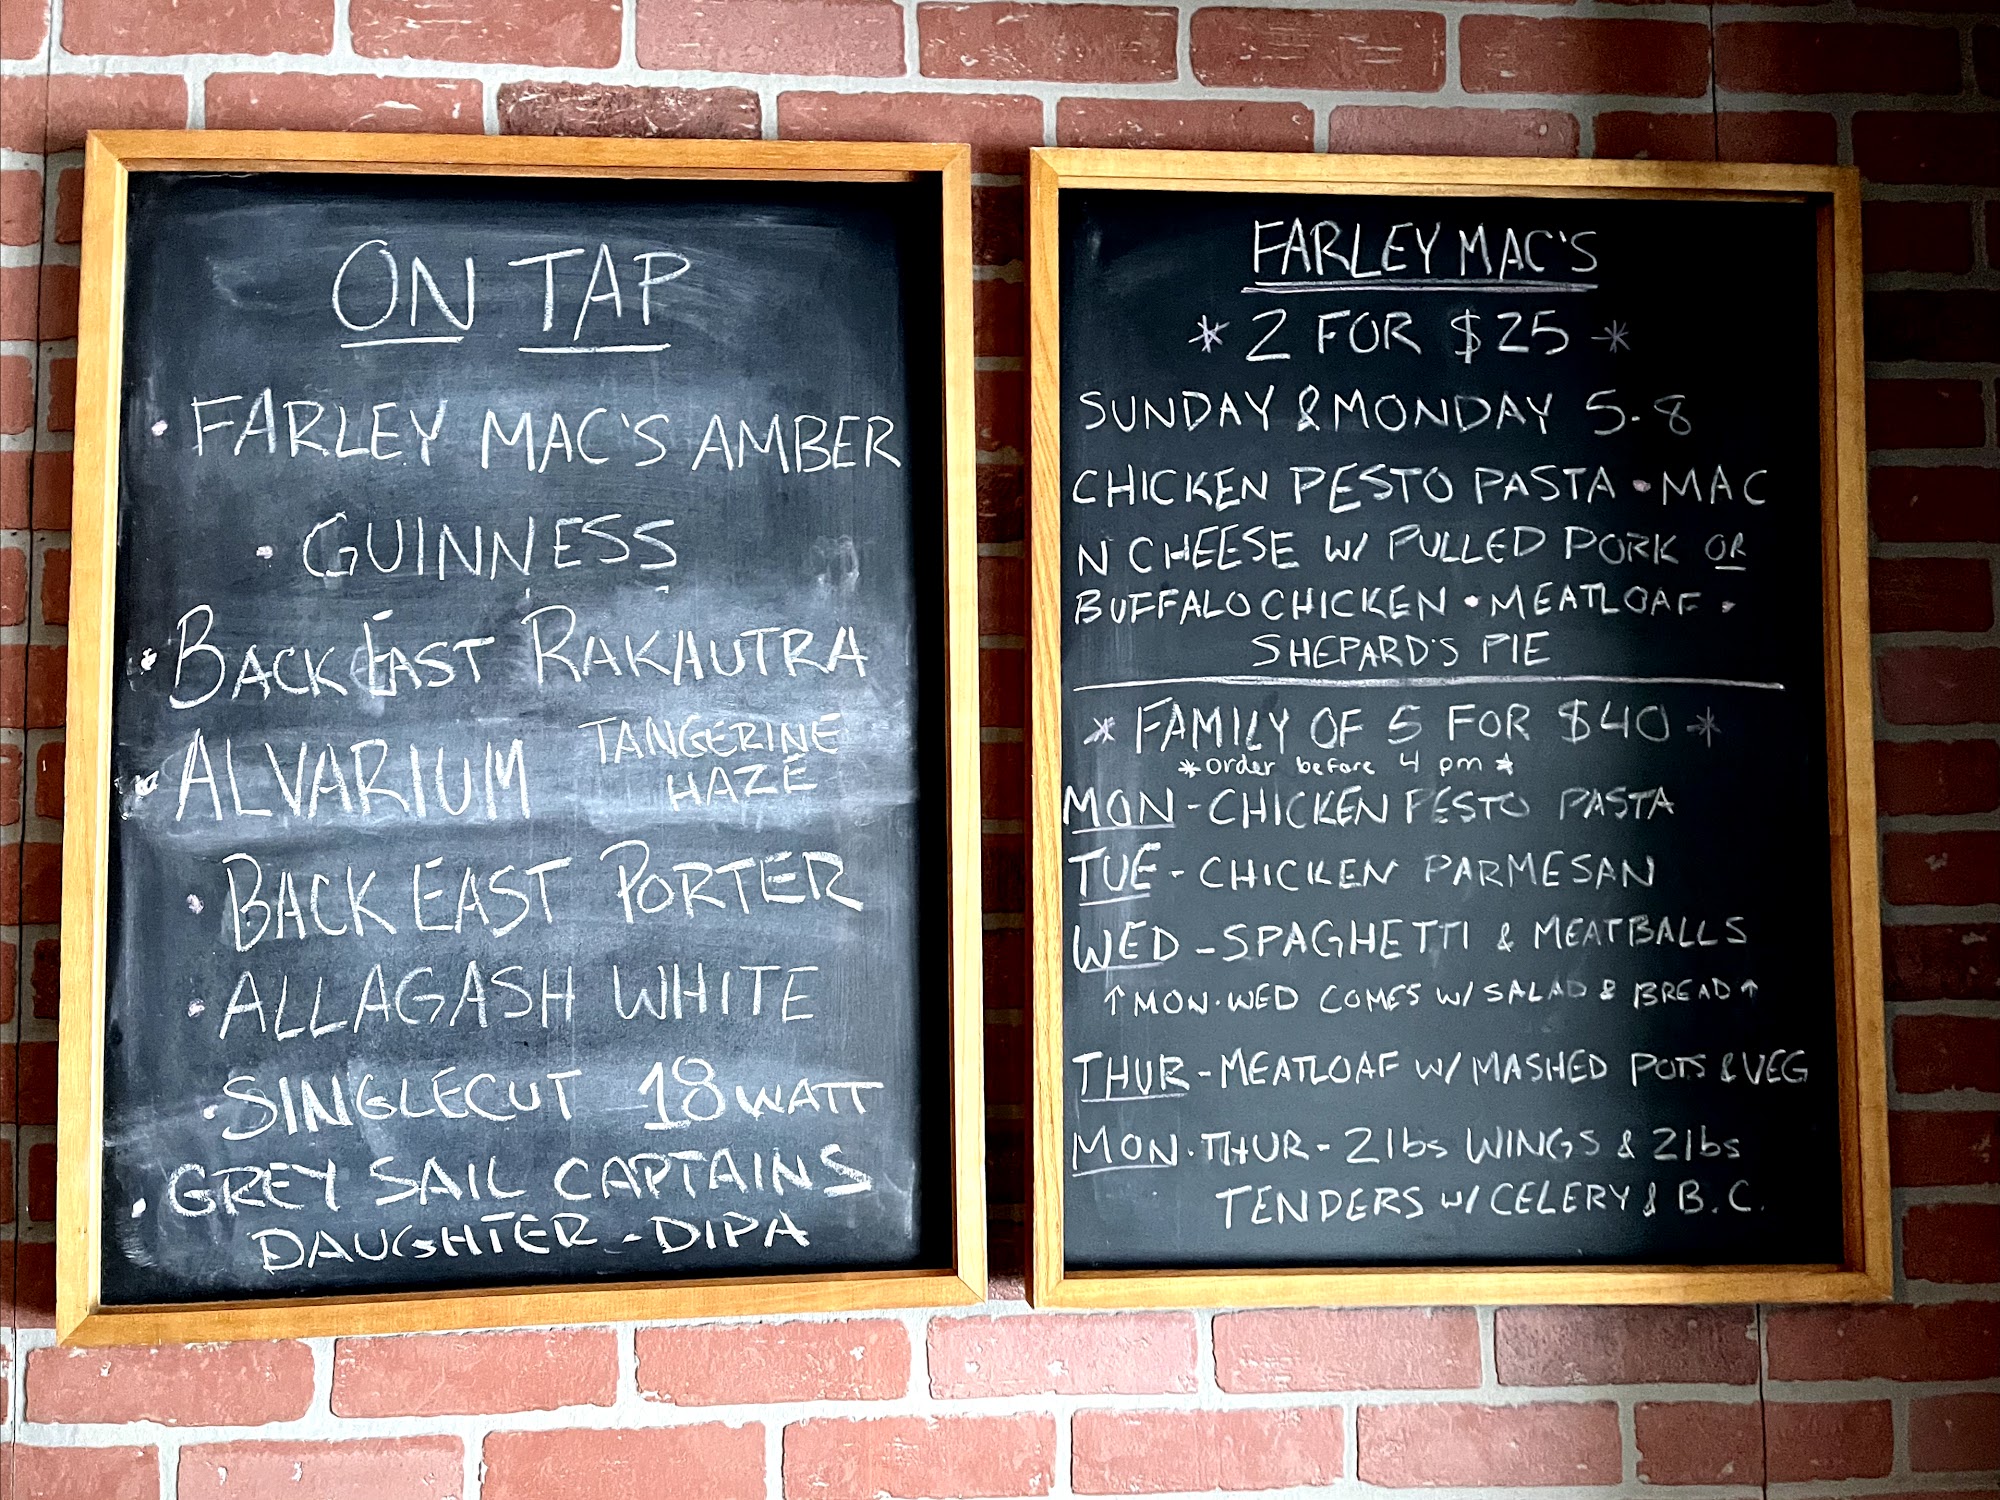 ON TAP
• FARLEY MAC'S AMBER
• GUINNESS
• BACK EAST RAKAUTRA
• ALVARIUM TANGERINE
HAZE
• BACK EAST PORTER
• ALLAGASH WHITE
• SINGLECUT 18 WATT
• GREY SAIL CAPTAINS
DAUGHTER - DIPA
FARLEY MAC'S
* 2 FOR $25 *
SUNDAY & MONDAY 5-8
CHICKEN PESTO PASTA • MAC
N CHEESE W/ PULLED PORK OR
BUFFALO CHICKEN • MEATLOAF •
SHEPARD'S PIE
* FAMILY OF 5 FOR $40 *
* order before 4 pm *
MON - CHICKEN PESTO PASTA
TUE - CHICKEN PARMESAN
WED - SPAGHETTI & MEATBALLS
↑ MON-WED COMES W/ SALAD & BREAD ↑
THUR - MEATLOAF W/ MASHED POTS & VEG
MON-THUR - 2 lbs WINGS & 2 lbs
TENDERS W/ CELERY & B.C.